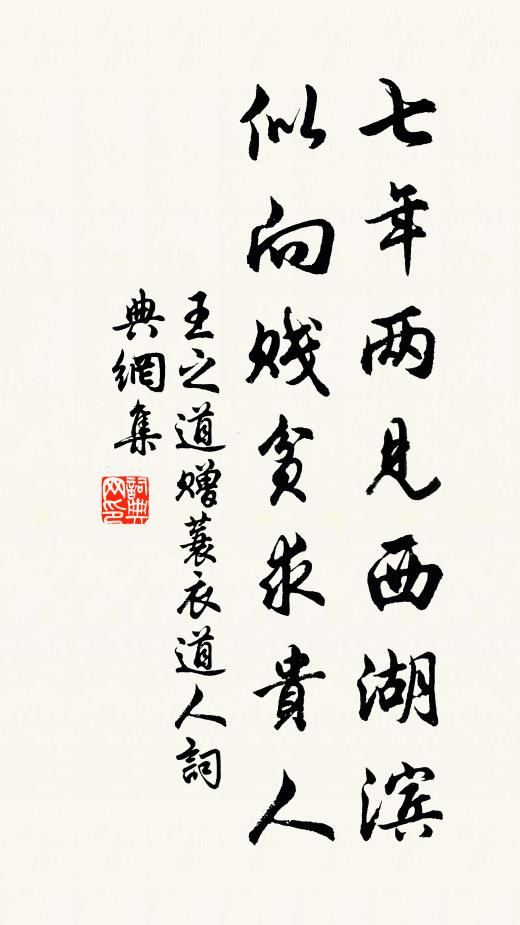 七年两见西湖滨
似向贱贫求貴人
王之道赠蓑衣道人詞
典網集
詞典网印